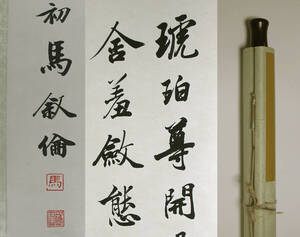 琥珀尊開月
含羞斂態
初馬敘倫
馬